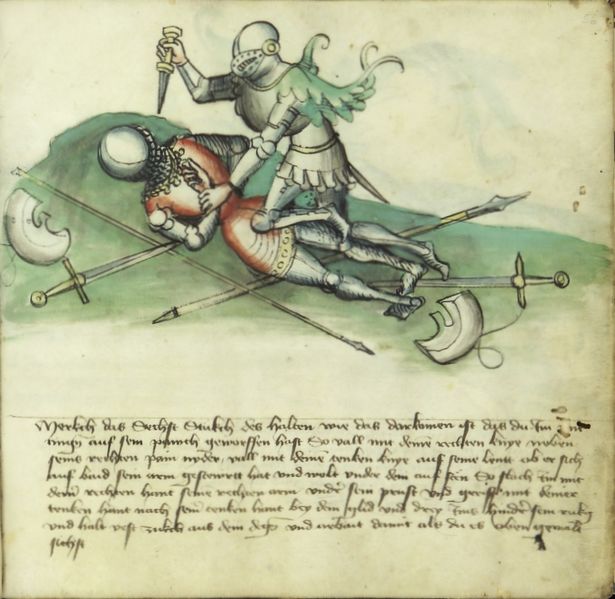 Merkch das Sechst Stukch des halten wie das darkomen ist das du im
ringen auf sein pauch geworffen hast So vall mit deine rechten knye neben
seins rechten pain nyder vall mit deine tenken knye auf seine lentt ob er sich
auf baid sein arem gestewrtt hat und wolt under dem auf sten So slach im mit
deiner rechten hant seine rechten arm under sein prust und greiff mit deiner
tenken hant nach sein tenken hant bey dem glid und drey im hinder sein rukg
und halt vest zukch aus dein deg und arbait damit als du es oben gemalt
sichst